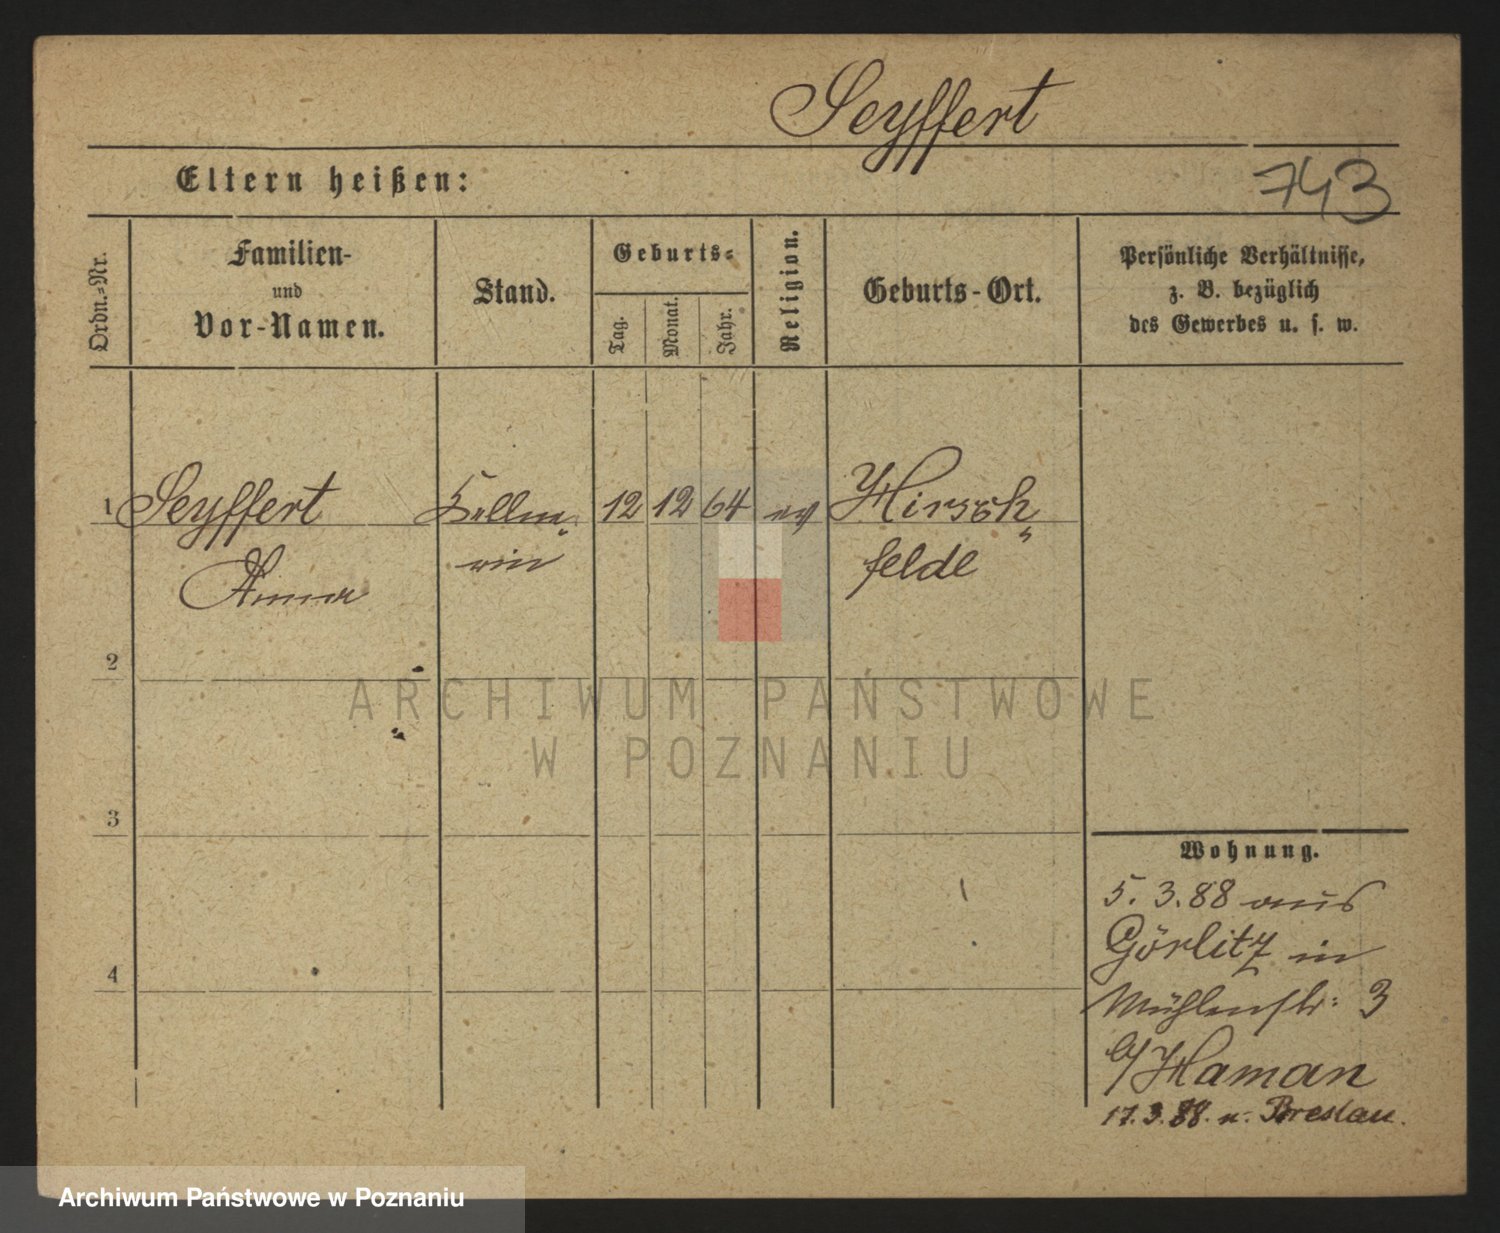 Seyffert
Eltern heißen:
743
Ordn.-Nr.
Familien-
und
Vor-Namen.
Stand.
Geburts-
Tag.
Monat.
Jahr.
Religion.
Geburts-Ort.
Persönliche Verhältnisse,
z. B. bezüglich
des Gewerbes u. s. w.
1 Seyffert Kellne- 12 12 64 ev Hirsch-
Anna rin felde
2
ARCHIWUM PAŃSTWOWE
W POZNANIU
3
4
Wohnung.
5. 3. 88 aus
Görlitz in
Mühlenstr: 3
b/ Haman
17. 3. 88. n. Breslau.
Archiwum Państwowe w Poznaniu